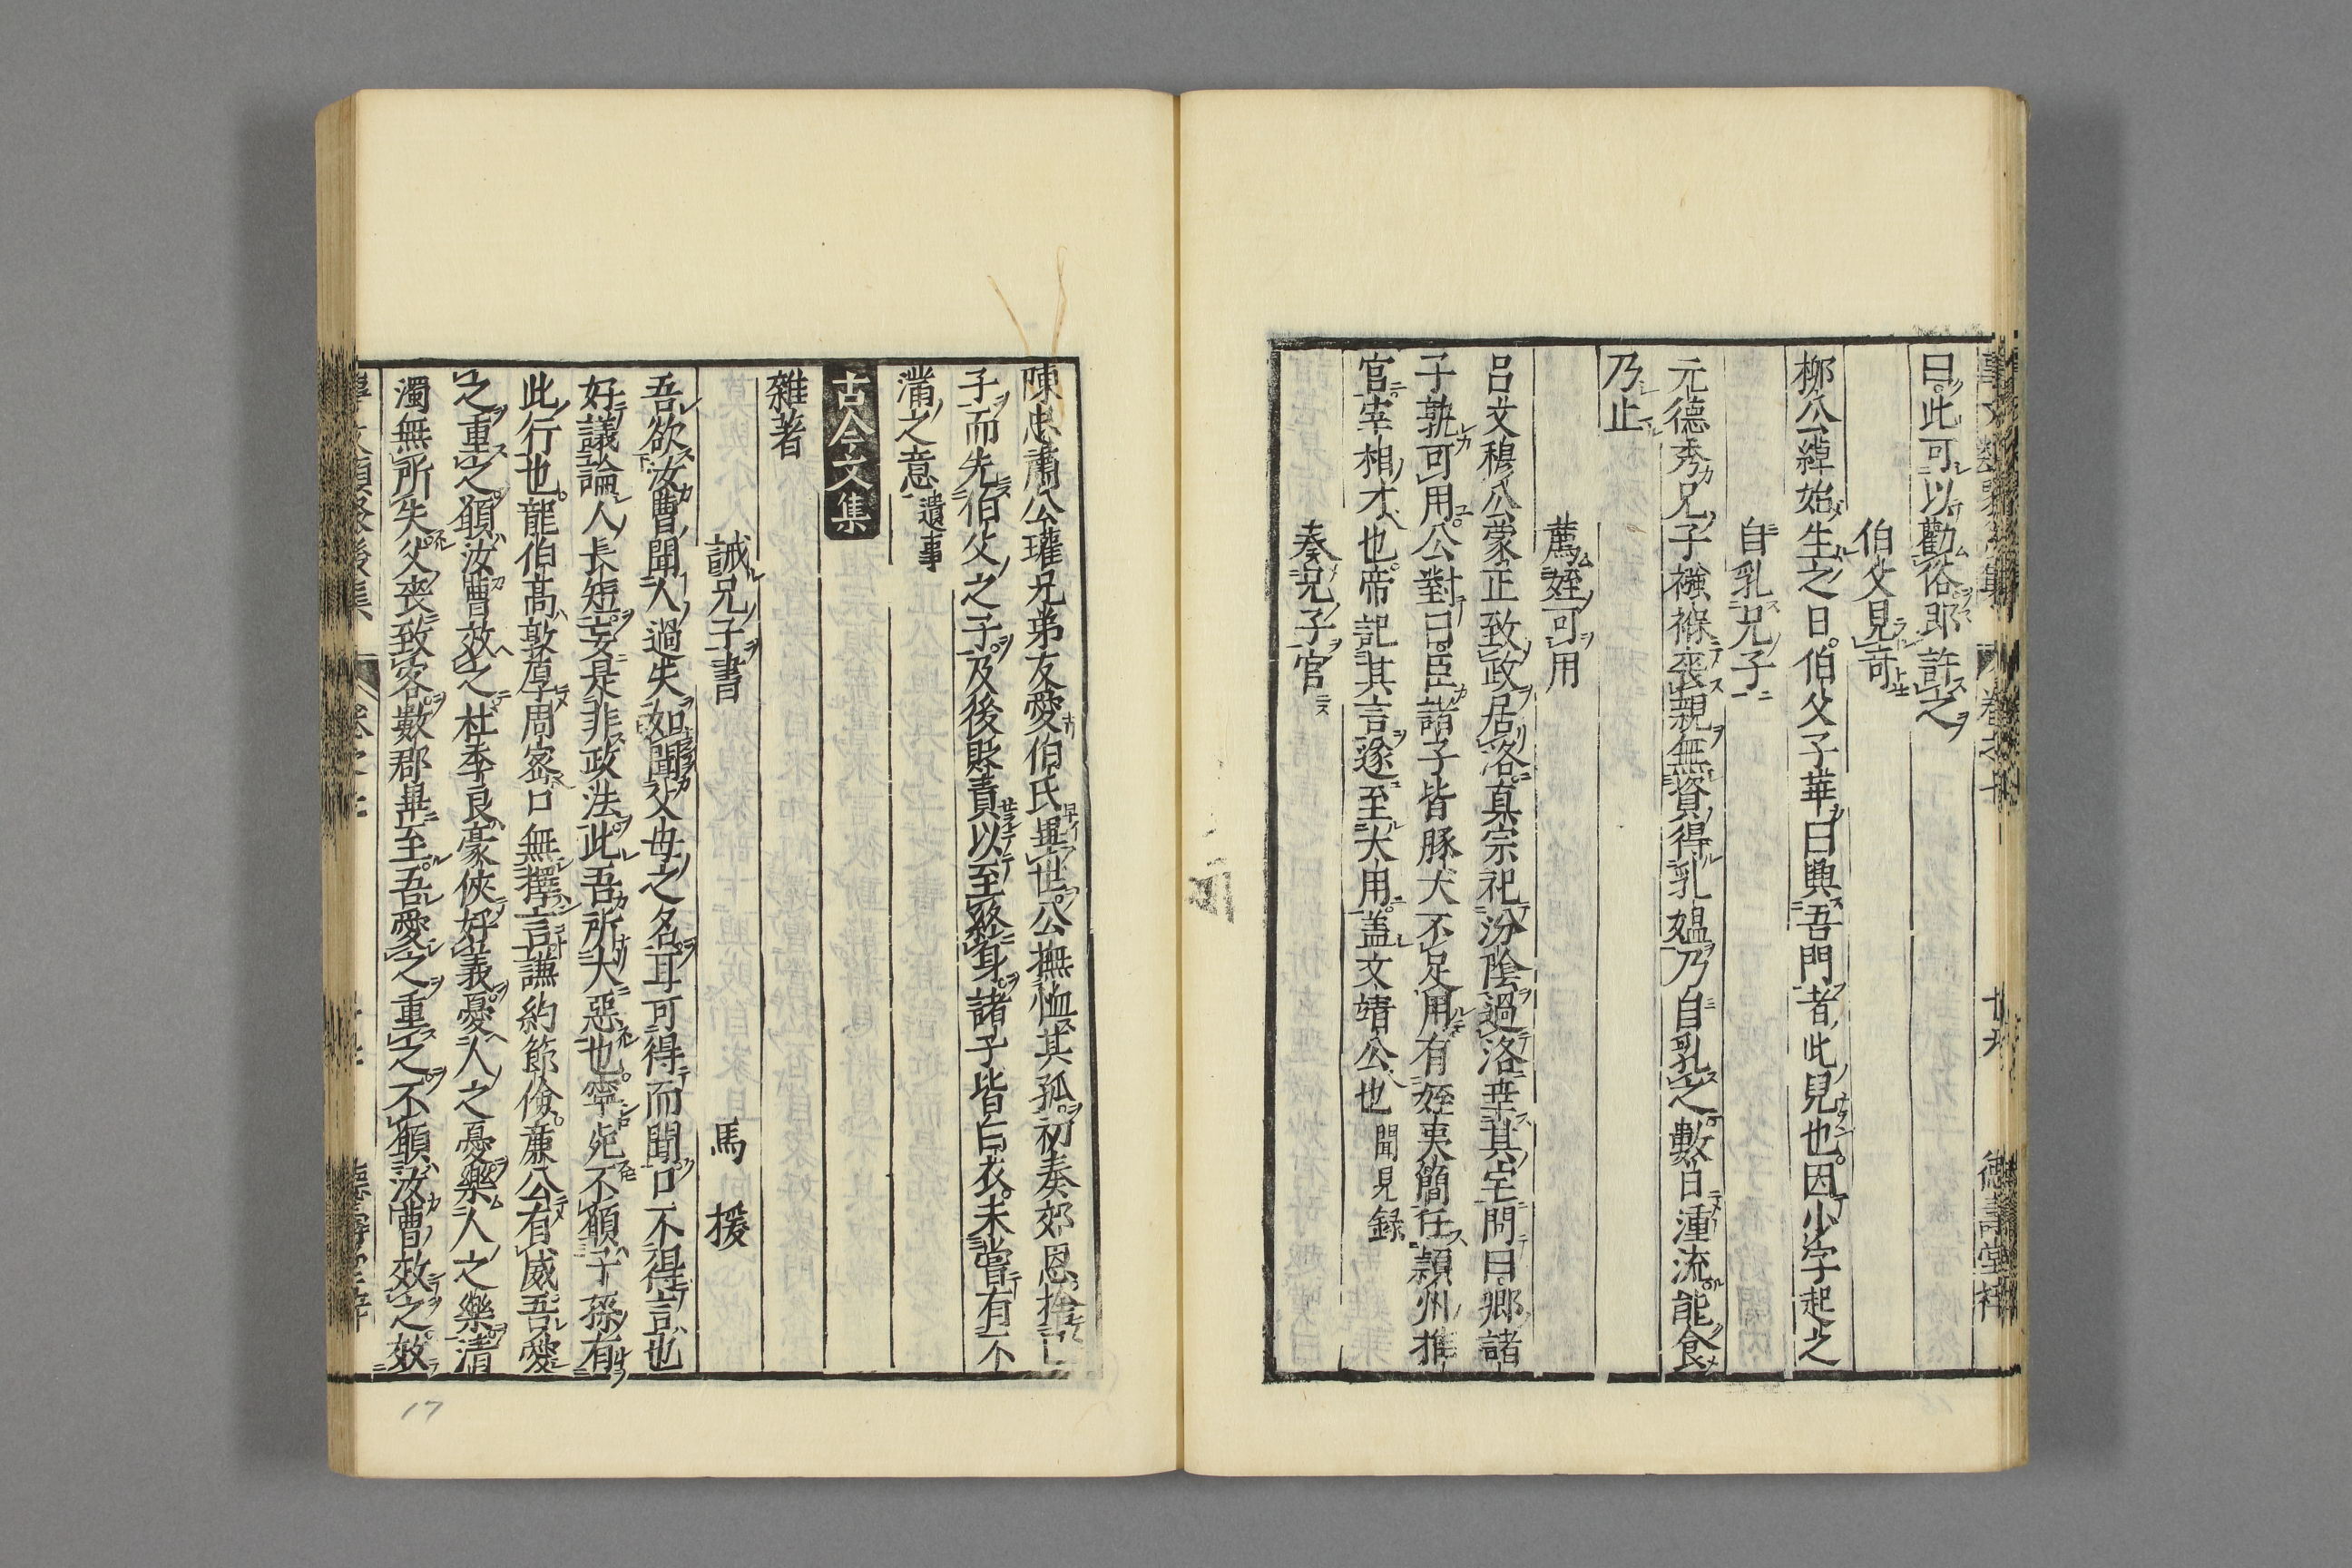 曰此可以勸俗耶許之
伯父見奇
柳公綽始生之日伯父子華曰興吾門者此兒也因小字起之
自乳兄子
元德秀兄子襁褓喪親無資得乳媼乃自乳之數日湩流能食
乃止
薦姪可用
呂文穆公蒙正致政居洛真宗祀汾陰過洛幸其宅問曰卿諸
子孰可用公對曰臣諸子皆豚犬不足用有姪夷簡任穎州推
官宰相才也帝記其言遂至大用蓋文靖公也聞見錄
奏兄子官
陳忠肅公瓘兄弟友愛伯氏異世公撫恤其孤初奏郊恩捨己
子而先伯父之子及後貶責以至終身諸子皆白衣未嘗有不
滿之意遺事
古今文集
雜著
誡兄子書 馬援
吾欲汝曹聞人過失如聞父母之名耳可得而聞口不得言也
好議論人長短妄是非政法此吾所大惡也寧死不願子孫有
此行也龍伯高敦厚周密口無擇言謙約節儉廉公有威吾愛
之重之願汝曹效之杜季良豪俠好義憂人之憂樂人之樂清
濁無所失父喪致客數郡畢至吾愛之重之不願汝曹效之效
17